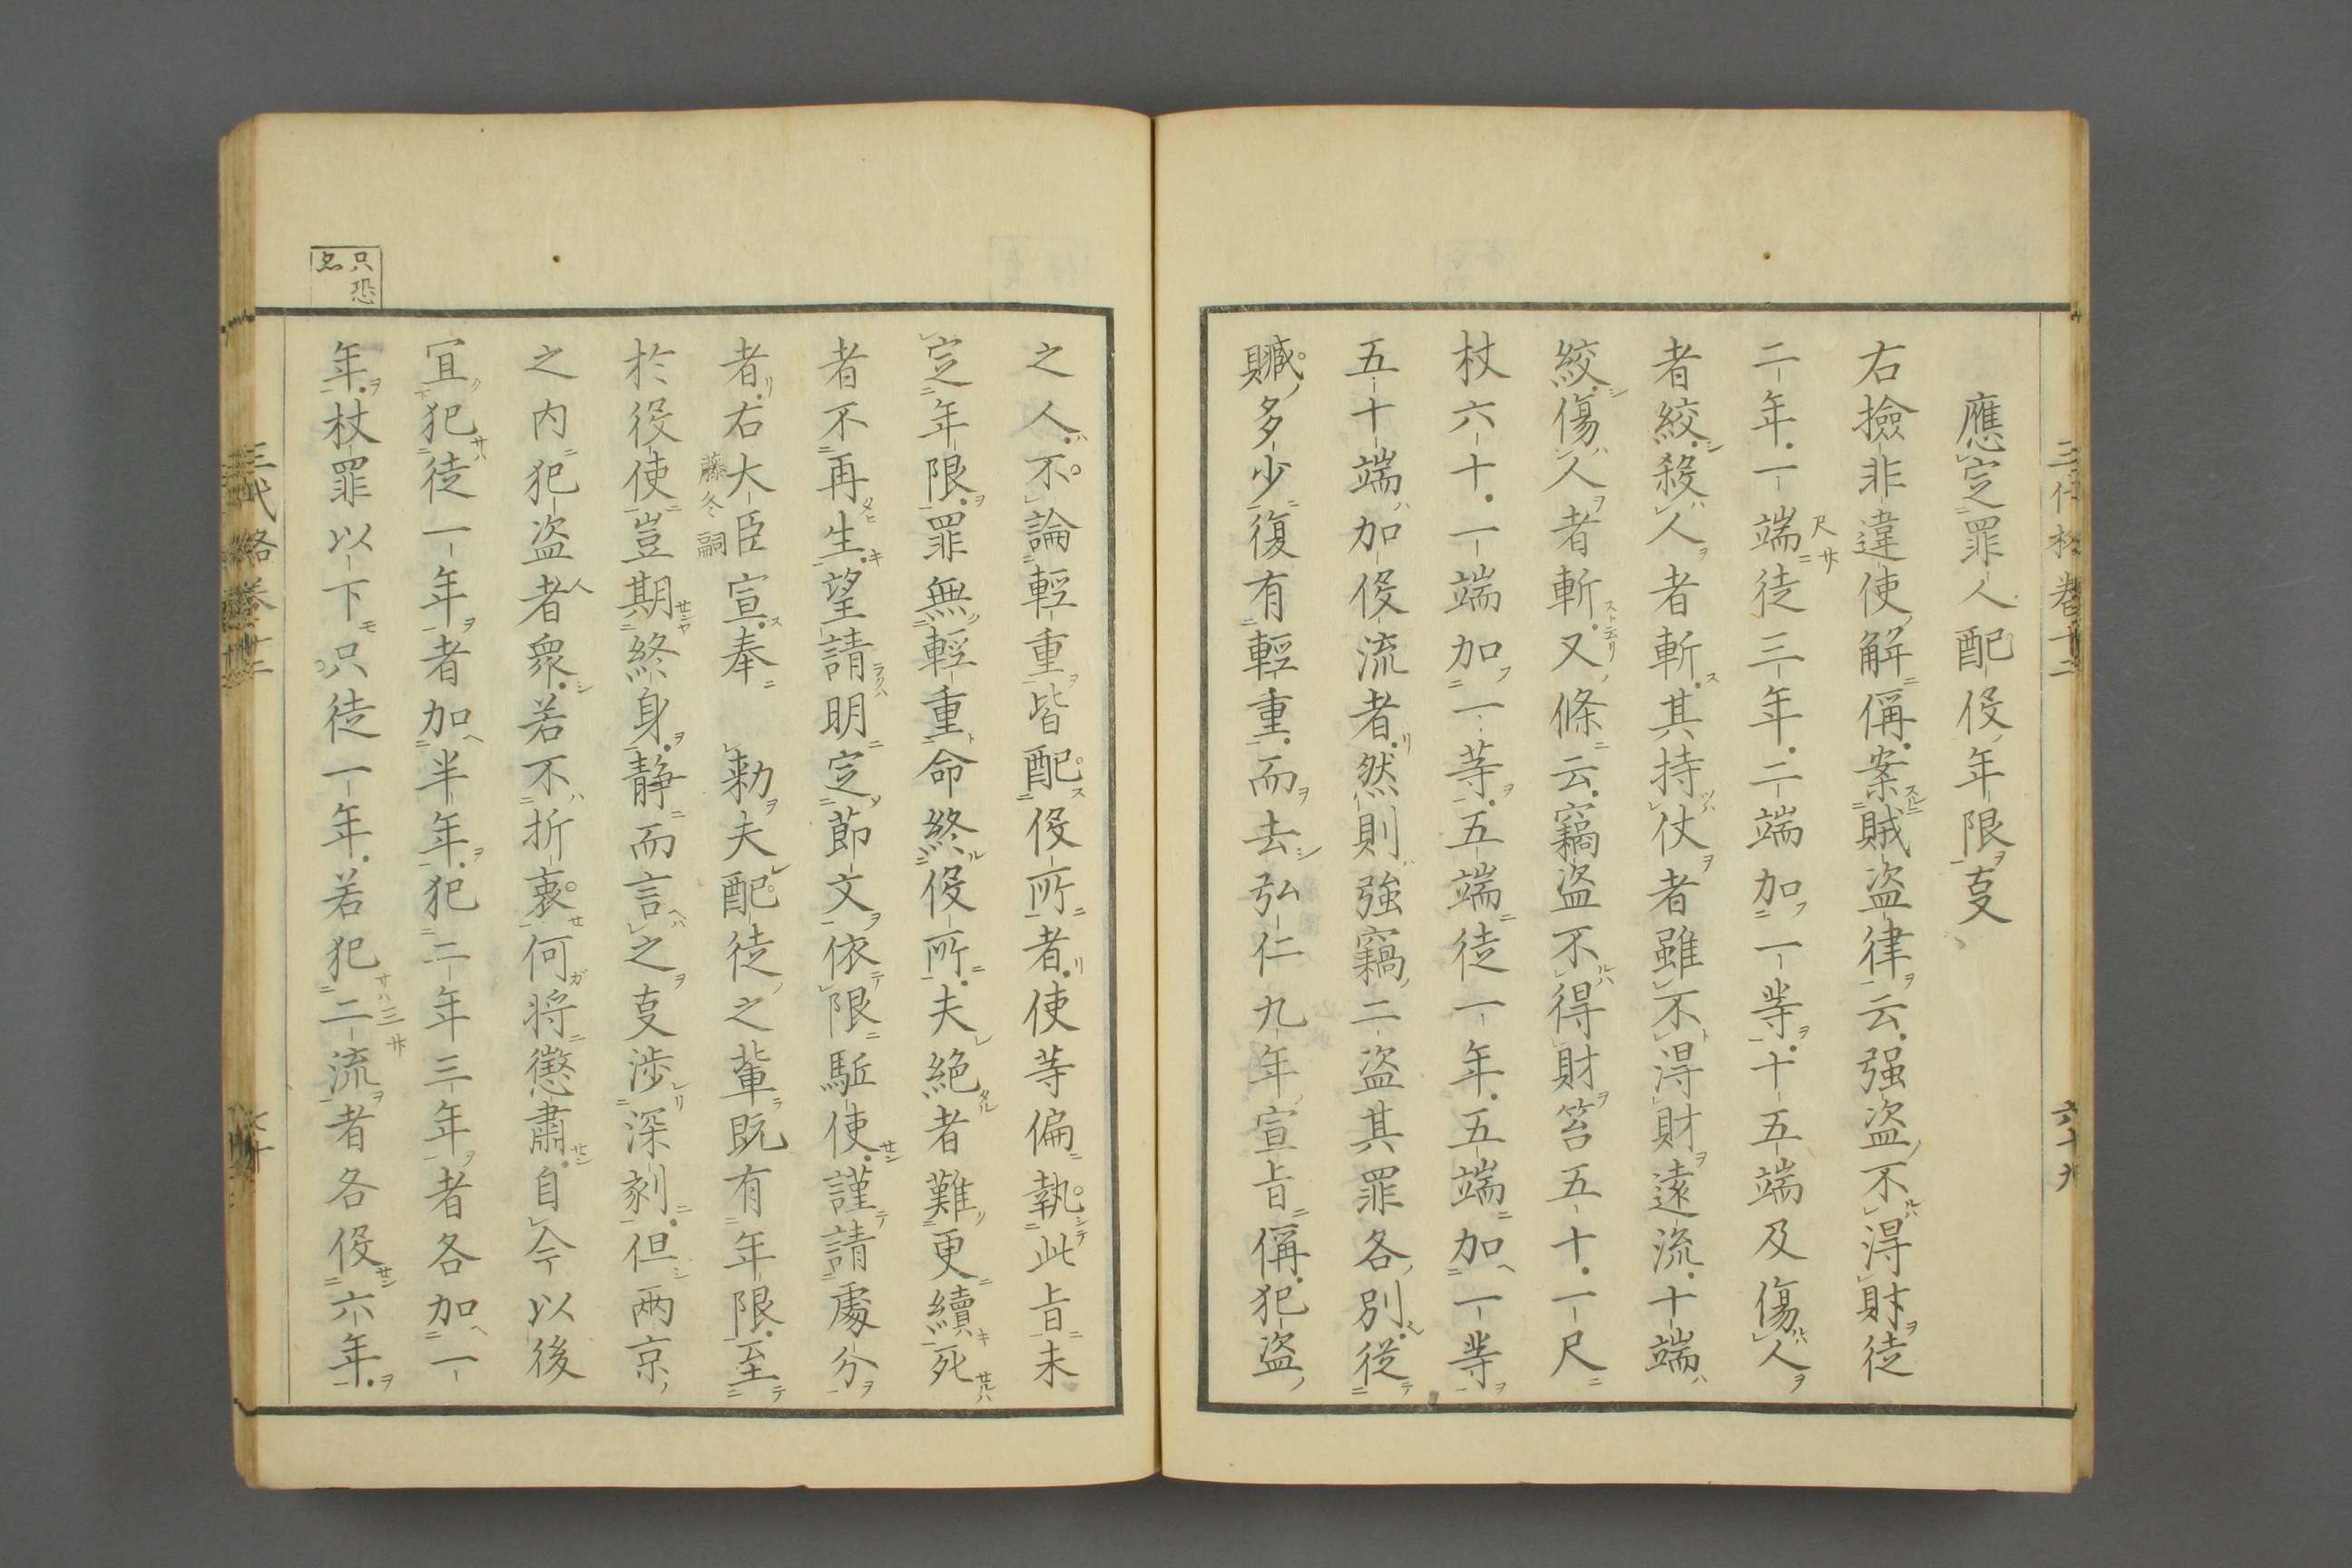 應定罪人配役年限㕝
右撿非違使解偁案賊盗律云强盗不得財徒
二年一端徒三年二端加一等十五端及傷人
者絞殺人者斬其持仗者雖不得財遠流十端
絞傷人者斬又條云竊盗不得財笞五十一尺
杖六十一端加一等五端徒一年五端加一等
五十端加役流者然則強竊二盗其罪各別從
贓多少復有輕重而去弘仁九年宣旨偁犯盗
之人不論輕重皆配役所者使等偏執此旨未
定年限罪無輕重命終役所夫絶者難更續死
者不再生望請明定節文依限駈使謹請處分
者右大臣宣奉　勅夫配徒之輩既有年限至
藤冬嗣
於役使豈期終身静而言之㕝渉深刻但兩京
之内犯盗者衆若不折衷何将懲肅自今以後
冝犯徒一年者加半年犯二年三年者各加一
年杖罪以下只徒一年若犯二流者各役六年
只恐
三代格巻十二
六十九